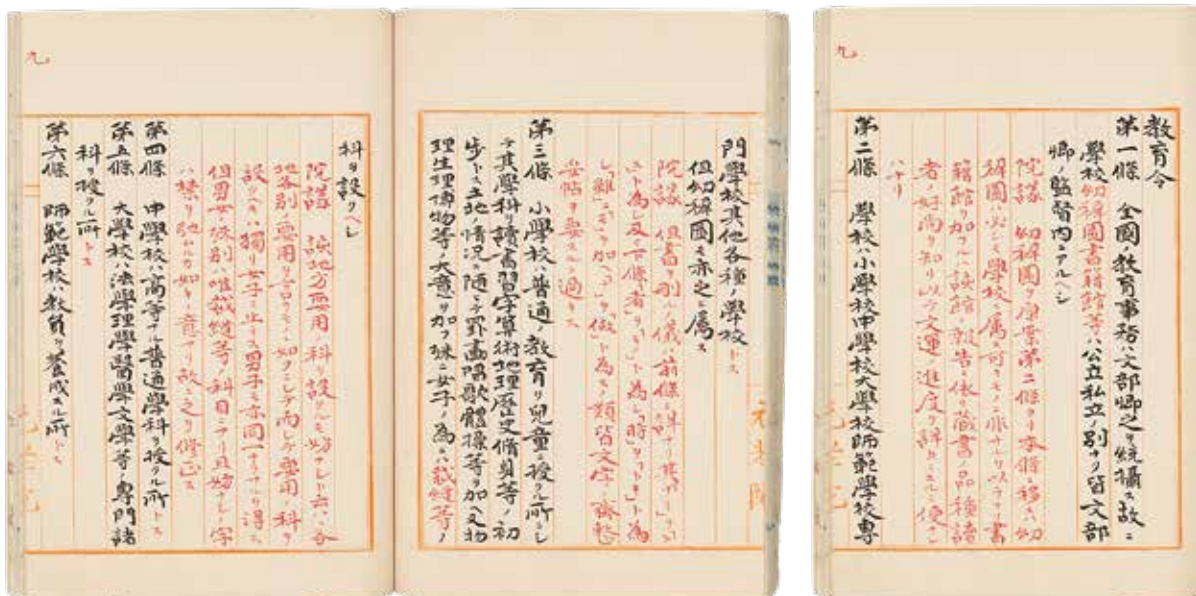 九
教育令
第一條 全國ノ教育事務ハ文部卿之ヲ統攝ス故ニ
學校幼稺園書籍館等ハ公立私立ノ別ナク皆文部
卿ノ監督内ニアルヘシ
院議 幼稺園ヲ原案第二條ヨリ本條ニ移スハ幼
稺園必シモ學校ニ属ス可キモノニ非 以テ 書
籍館ヲ加フルハ該館ノ報告ニ依リ藏書ノ品種讀
者ノ好尚ヲ知リ以テ文運ノ進度ヲ詳ニスルニ便
ハナリ
第二條 學校ハ小學校中學校大學校師範學校專
門學校其他各種ノ學校トス
但幼稺園モ亦之ニ属ス
院議 但書ヲ刪ル儀ハ前條ニ詳ナリ其
ト為シ 為シ 時 為
シ 雖 加ヘ 做 為ス類皆文字ノ齊整
妥帖ヲ要スルニ過キス
第三條 小學校ハ普通ノ教育ヲ兒童ニ授クル所ニシ
テ其學科ヲ讀書習字算術地理歴史脩身等ノ初
歩トス土地ノ情況ニ隨ヒテ罫畫唱歌體操等ヲ加ヘ又物
理生理博物等ノ大意ヲ加フ殊ニ女子ノ為ニハ裁縫等ノ
九
科ヲ設クヘシ
院議 該地方要用ノ科ヲ設クルモ妨ナシト云ハ各
地各別ノ要用ヲ言フモノヽ如クニシテ而シテ要用ノ科ヲ
設クヘキハ獨リ女子ニ止ラス男子モ亦同一ナラサルヲ得ス
但男女ノ別ハ唯裁縫等ノ科目ニアリ且妨ナシノ字
ハ禁ヲ弛ムルカ如キノ意アリ故ニ之ヲ修正ス
第四條 中學校ハ高等ナル普通學科ヲ授クル所トス
第五條 大學校ハ法學理學醫學文學等ノ專門諸
科ヲ授クル所トス
第六條 師範學校ハ教員ヲ養成スル所トス